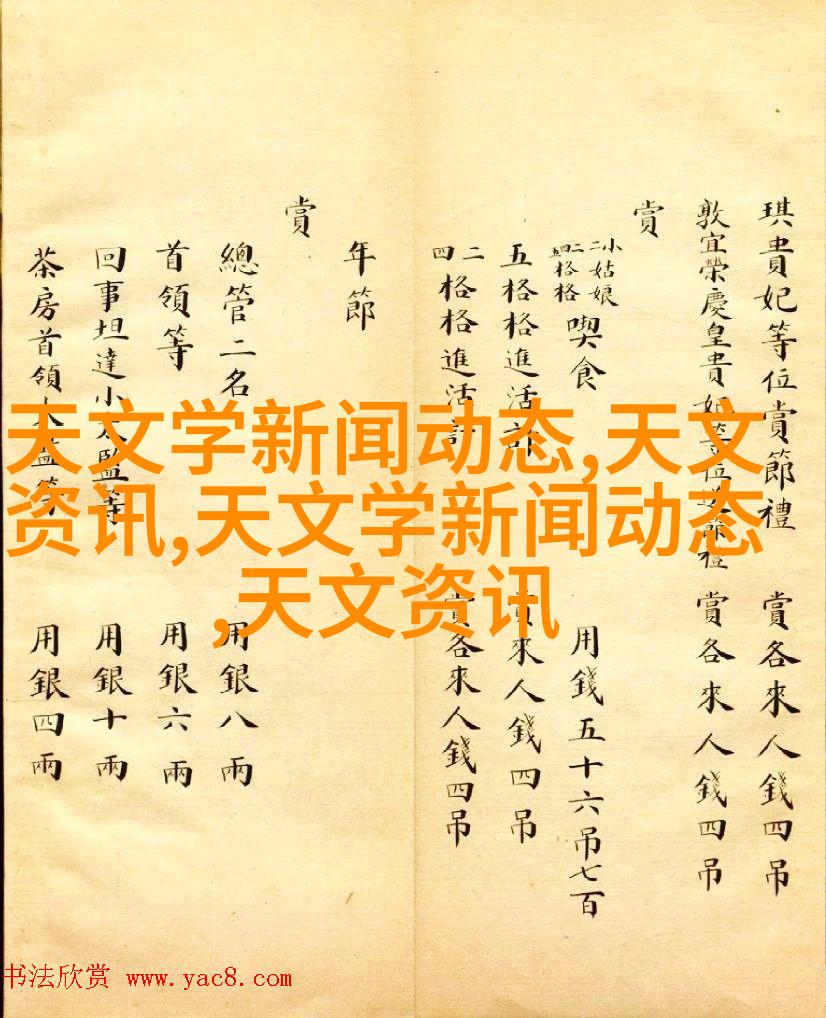 琪貴妃等位賞節禮 賞各來人錢四吊
敦宜榮慶皇貴妃等位 節禮 賞各來人錢四吊
賞
小姑娘
二
二格格
四格格
喫食 用錢五十六吊七百
五格格進活計 賞來人錢四吊
二
四
格格進活計 賞各來人錢四吊
年節
賞
總管二名 用銀八兩
首領等 用銀六兩
回事坦達小太監等 用銀十兩
茶房首領太監等 用銀四兩
天文学新闻动态,天文
资讯,天文学新闻动态
,天文资讯
书法欣赏 www.yac8.com